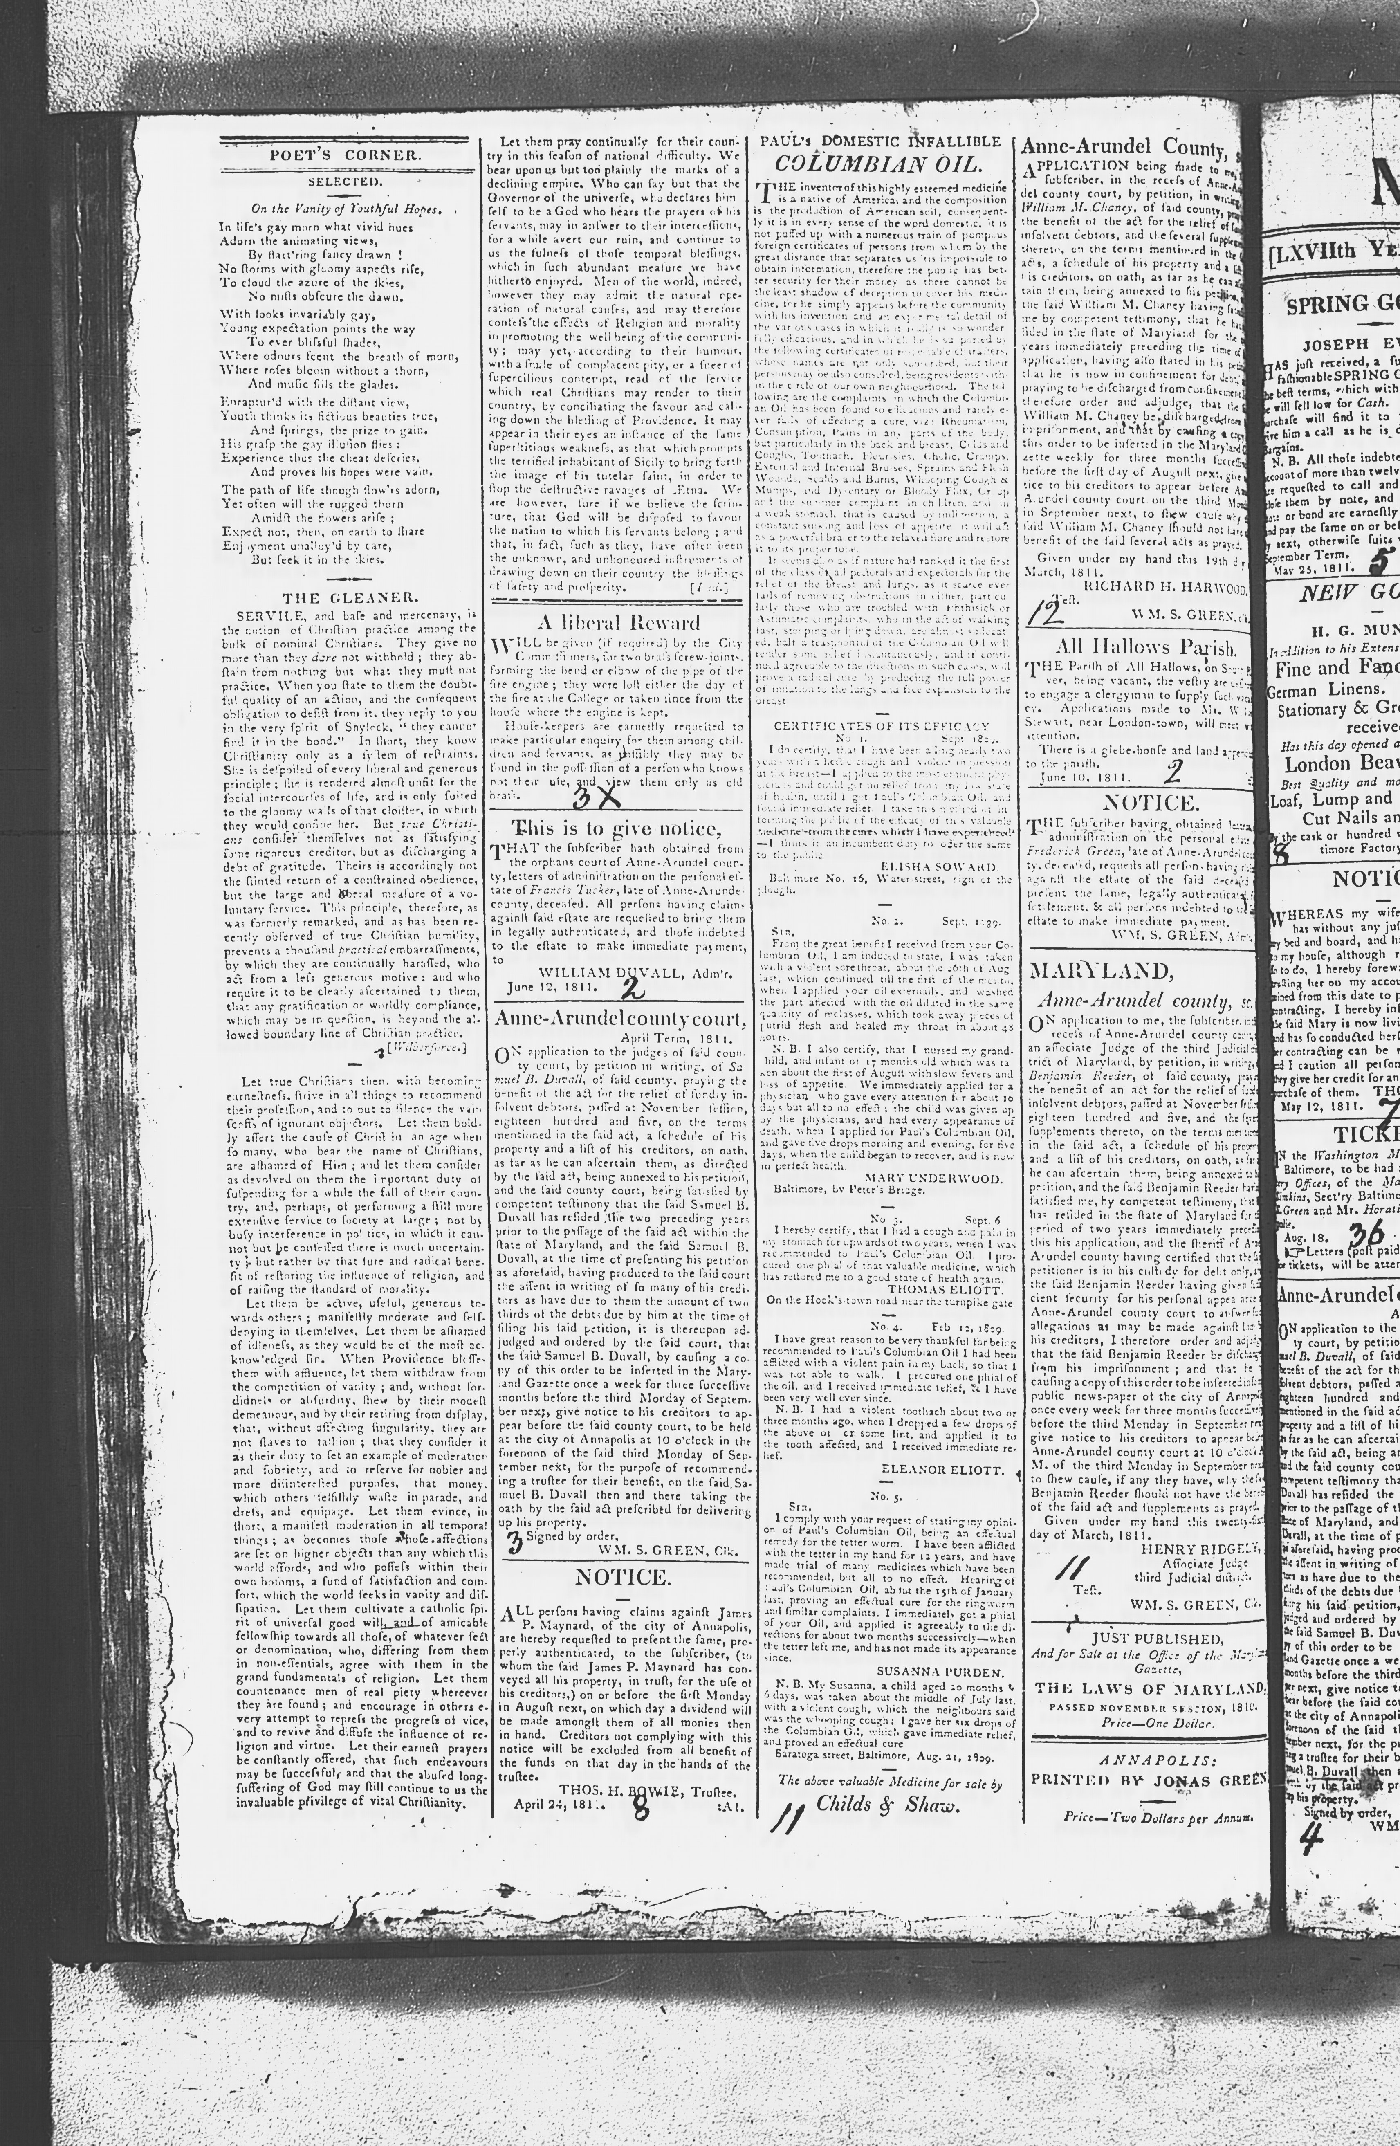 POET'S CORNER.
SELECTED.
On the Vanity of Youthful Hopes.
In life's gay morn what vivid hues
Adorn the animating views,
By flatt'ring fancy drawn !
No ſtorms with gloomy aſpects riſe,
To cloud the azure of the ſkies,
No miſts obſcure the dawn.
With looks invariably gay,
Young expectation points the way
To ever bliſsful ſhades,
Where odours ſcent the breath of morn,
Where roſes bloom without a thorn,
And muſic fills the glades.
Enraptur'd with the diſtant view,
Youth thinks its fictious beauties true,
And ſprings, the prize to gain.
His graſp the gay illuſion flies ;
Experience thus the cheat deſcries,
And proves his hopes were vain.
The path of life though flow'rs adorn,
Yet often will the rugged thorn
Amidſt the flowers ariſe ;
Expect not, then, on earth to ſhare
Enjoyment unalloy'd by care,
But ſeek it in the ſkies.
THE GLEANER.
SERVILE, and baſe and mercenary, is
the notion of Chriſtian practice among the
bulk of nominal Chriſtians. They give no
more than they dare not withhold ; they ab-
ſtain from nothing but what they muſt not
practice. When you ſtate to them the doubt-
ful quality of an action, and the conſequent
obligation to deſiſt from it, they reply to you
in the very ſpirit of Shylock, " they cannot
find it in the bond." In ſhort, they know
Chriſtianity only as a ſyſtem of reſtraints.
She is deſpoiled of every liberal and generous
principle ; ſhe is rendered almoſt unfit for the
ſocial intercourſes of life, and is only ſuited
to the gloomy walls of that cloiſter, in which
they would confine her. But true Chriſti-
ans conſider themſelves not as ſatisfying
ſome rigorous creditor, but as diſcharging a
debt of gratitude. Theirs is accordingly not
the ſtinted return of a conſtrained obedience,
but the large and liberal meaſure of a vo-
luntary ſervice. This principle, therefore, as
was formerly remarked, and as has been re-
cently obſerved of true Chriſtian humility,
prevents a thouſand practical embarraſſments,
by which they are continually haraſſed, who
act from a leſs generous motive ; and who
require it to be clearly aſcertained to them,
that any gratification or worldly compliance,
which may be in queſtion, is beyond the al-
lowed boundary line of Chriſtian practice.
[Wilberforce.]
Let true Chriſtians then, with becoming
earneſtneſs, ſtrive in all things to recommend
their profeſſion, and to put to ſilence the vain
ſcoffs of ignorant objectors. Let them bold-
ly aſſert the cauſe of Chriſt in an age when
ſo many, who bear the name of Chriſtians,
are aſhamed of Him ; and let them conſider
as devolved on them the important duty of
ſuſpending for a while the fall of their coun-
try, and, perhaps, of performing a ſtill more
extenſive ſervice to ſociety at large ; not by
buſy interference in politics, in which it can-
not but be confeſſed there is much uncertain-
ty ; but rather by that ſure and radical bene-
fit of reſtoring the influence of religion, and
of raiſing the ſtandard of morality.
Let them be active, uſeful, generous to-
wards others ; manifeſtly moderate and ſelf-
denying in themſelves. Let them be aſhamed
of idleneſs, as they would be of the moſt ac-
knowledged ſin. When Providence bleſſes
them with affluence, let them withdraw from
the competition of vanity ; and, without ſor-
didneſs or abſurdity, ſhew by their modeſt
demeanour, and by their retiring from diſplay,
that, without affecting ſingularity, they are
not ſlaves to faſhion ; that they conſider it
as their duty to ſet an example of moderation
and ſobriety, and to reſerve for nobler and
more diſintereſted purpoſes, that money,
which others ſelfiſhly waſte in parade, and
dreſs, and equipage. Let them evince, in
ſhort, a manifeſt moderation in all temporal
things ; as becomes thoſe whoſe affections
are ſet on higher objects than any which this
world affords, and who poſſeſs within their
own boſoms, a fund of ſatisfaction and com-
fort, which the world ſeeks in vanity and diſ-
ſipation. Let them cultivate a catholic ſpi-
rit of univerſal good will, and of amicable
fellowſhip towards all thoſe, of whatever ſect
or denomination, who, differing from them
in non-eſſentials, agree with them in the
grand fundamentals of religion. Let them
countenance men of real piety wherever
they are found ; and encourage in others e-
very attempt to repreſs the progreſs of vice,
and to revive and diffuſe the influence of re-
ligion and virtue. Let their earneſt prayers
be conſtantly offered, that ſuch endeavours
may be ſucceſsful, and that the abuſed long-
ſuffering of God may ſtill continue to us the
invaluable privilege of vital Chriſtianity.
Let them pray continually for their coun-
try in this ſeaſon of national difficulty. We
bear upon us but too plainly the marks of a
declining empire. Who can ſay but that the
Governor of the univerſe, who declares him
ſelf to be a God who hears the prayers of his
ſervants, may in anſwer to their interceſſions,
for a while avert our ruin, and continue to
us the fulneſs of thoſe temporal bleſſings,
which in ſuch abundant meaſure we have
hitherto enjoyed. Men of the world, indeed,
however they may admit the natural ope-
ration of natural cauſes, and may therefore
confeſs the effects of Religion and morality
in promoting the well being of the communi-
ty ; may yet, according to their humour,
with a ſmile of complacent pity, or a ſneer of
ſupercilious contempt, read of the ſervice
which real Chriſtians may render to their
country, by conciliating the favour and call-
ing down the bleſſing of Providence. It may
appear in their eyes an inſtance of the ſame
ſuperſtitious weakneſs, as that which prompts
the terrified inhabitant of Sicily to bring forth
the image of his tutelar ſaint, in order to
ſtop the deſtructive ravages of Ætna. We
are however, ſure if we believe the ſcrip-
ture, that God will be diſpoſed to favour
the nation to which his ſervants belong ; and
that, in fact, ſuch as they, have often been
the unknown, and unhonoured inſtruments of
drawing down on their country the bleſſings
of ſafety and proſperity. [Ibid.]
A liberal Reward
WILL be given (if required) by the City
Commiſſioners, for two braſs ſcrew-joints,
forming the bend or elbow of the pipe of the
fire engine ; they were loſt either the day of
the fire at the College or taken ſince from the
houſe where the engine is kept.
Houſe-keepers are earneſtly requeſted to
make particular enquiry for them among chil-
dren and ſervants, as poſſibly they may be
found in the poſſeſſion of a perſon who knows
not their uſe, and view them only as old
braſs.
3X
This is to give notice,
THAT the ſubſcriber hath obtained from
the orphans court of Anne-Arundel coun-
ty, letters of adminiſtration on the perſonal eſ-
tate of Francis Tucker, late of Anne-Arundel
county, deceaſed. All perſons having claims
againſt ſaid eſtate are requeſted to bring them
in legally authenticated, and thoſe indebted
to the eſtate to make immediate payment,
to
WILLIAM DUVALL, Adm'r.
June 12, 1811. 2
Anne-Arundel county court,
April Term, 1811.
ON application to the judges of ſaid coun-
ty court, by petition in writing, of Sa
muel B. Duvall, of ſaid county, praying the
benefit of the act for the relief of ſundry in-
ſolvent debtors, paſſed at November ſeſſion,
eighteen hundred and five, on the terms
mentioned in the ſaid act, a ſchedule of his
property and a liſt of his creditors, on oath,
as far as he can aſcertain them, as directed
by the ſaid act, being annexed to his petition,
and the ſaid county court, being ſatisfied by
competent teſtimony that the ſaid Samuel B.
Duvall has reſided the two preceding years
prior to the paſſage of the ſaid act within the
ſtate of Maryland, and the ſaid Samuel B.
Duvall, at the time of preſenting his petition
as aforeſaid, having produced to the ſaid court
the aſſent in writing of ſo many of his credi-
tors as have due to them the amount of two
thirds of the debts due by him at the time of
filing his ſaid petition, it is thereupon ad-
judged and ordered by the ſaid court, that
the ſaid Samuel B. Duvall, by cauſing a co-
py of this order to be inſerted in the Mary-
land Gazette once a week for three ſucceſſive
months before the third Monday of Septem-
ber next, give notice to his creditors to ap-
pear before the ſaid county court, to be held
at the city of Annapolis at 10 o'clock in the
forenoon of the ſaid third Monday of Sep-
tember next, for the purpoſe of recommend-
ing a truſtee for their benefit, on the ſaid Sa-
muel B. Duvall then and there taking the
oath by the ſaid act preſcribed for delivering
up his property.
3 Signed by order,
WM. S. GREEN, Clk.
NOTICE.
ALL perſons having claims againſt James
P. Maynard, of the city of Annapolis,
are hereby requeſted to preſent the ſame, pro-
perly authenticated, to the ſubſcriber, (to
whom the ſaid James P. Maynard has con-
veyed all his property, in truſt, for the uſe of
his creditors,) on or before the firſt Monday
in Auguſt next, on which day a dividend will
be made amongſt them of all monies then
in hand. Creditors not complying with this
notice will be excluded from all benefit of
the funds on that day in the hands of the
truſtee.
THOS. H. BOWIE, Truſtee.
April 24, 1811. 8 tA1.
PAUL's DOMESTIC INFALLIBLE
COLUMBIAN OIL.
THE inventer of this highly esteemed medicine
is a native of America, and the composition
is the production of American soil, consequent-
ly it is in every sense of the word domestic. it is
not puffed up with a numerous train of pompous
foreign certificates of persons from whom by the
great distance that separates us 'tis impossible to
obtain information, therefore the public has bet-
ter security for their money as there cannot be
the least shadow of deception to cover his medi-
cine, for he simply appears before the community
with his invention and an experimental detail of
the various cases in which it is so wonder-
fully efficacious, and in which he is supported by
the following certificates of respectable characters,
whose names are not only
persons may be also consulted, being residents with-
in the circle of our own neighbourhood. The fol-
lowing are the complaints in which the Columbi-
an Oil has been found so efficacious and rarely e-
ver fails of effecting a cure, viz: Rheumatism,
Consumption, Pains in any parts of the body,
but particularly in the back and breast, Colds and
Coughs, Toothach, Pleurisies, Cholic, Cramps,
External and Internal Bruises, Sprains and Flesh
Wounds, Scalds and Burns, Whooping Cough &
Mumps, and Dysentary or Bloody Flux, Croup
and the summer complaint in children, and in
a weak stomach that is caused by indigestion, a
constant sickning and loss of appetite it will act
as a powerful bracer to the relaxed fibre and restore
it to its proper tone.
It seems also as if nature had ranked it the first
of the class of all pectorals and expectorals for the
relief of the breast and lungs, as it scarce ever
fails of removing obstructions in either, particu-
larly those who are troubled with Phthisick or
Asthmatic complaints, who in the act of walking
fast, stooping or lying down, are almost suffocat-
ed, half a teaspoonful of the Columbian Oil will
render some relief instantaneously, and if contin-
nued agreeable to the directions in such cases, will
prove a radical cure by producing the full power
of inflation to the lungs and free expansion to the
breast
CERTIFICATES OF ITS EFFICACY
No 1. Sept. 1809.
I do certify, that I have been along nearly two
years with a hectic cough and violent oppression
at the breast—I applied to the most eminent phy-
sicians and could get no relief from
of health, until I got Paul's Columbian Oil, and
found immediate relief. I take this method of in-
forming the public of the efficacy of this valuable
medicine from the cures which I have experienced
—I think it an incumbent duty to offer the same
to the public
ELISHA SOWARD
Baltimore No. 16, Water street, sign of the
plough.
No. 2. Sept. 1809.
SIR,
From the great benefit I received from your Co-
lumbian Oil, I am induced to state, I was taken
with a violent sore throat, about the 26th of Aug
last, which continued till the first of the month,
when I applied your oil externally, and washed
the part affected with the oil diluted in the same
quantity of melasses, which took away pieces of
putrid flesh and healed my throat in about 48
hours.
N. B. I also certify, that I nursed my grand-
child, and infant of 17 months old which was ta-
ken about the first of August with slow fevers and
loss of appetite. We immediately applied for a
physician who gave every attention for about 10
days but all to no effect ; the child was given up
by the physicians, and had every appearance of
death, when I applied for Paul's Columbian Oil,
and gave five drops morning and evening, for five
days, when the child began to recover, and is now
in perfect health.
MARY UNDERWOOD.
Baltimore, by Peter's Bridge.
No 3. Sept. 6
I hereby certify, that I had a cough and pain in
my stomach for upwards of two years, when I was
recommended to Paul's Columbian Oil. I pro-
cured one phial of that valuable medicine, which
has restored me to a good state of health again.
THOMAS ELIOTT.
On the Hook's-town road near the turnpike gate
No. 4. Feb 12, 1809.
I have great reason to be very thankful for being
recommended to Paul's Columbian Oil I had been
afflicted with a violent pain in my back, so that I
was not able to walk. I procured one phial of
the oil, and I received immediate relief, & I have
been very well ever since.
N. B. I had a violent toothach about two or
three months ago, when I dropped a few drops of
the above oil on some lint, and applied it to
the tooth affected, and I received immediate re-
lief.
ELEANOR ELIOTT.
No. 5.
SIR,
I comply with your request of stating my opini-
on of Paul's Columbian Oil, being an effectual
remedy for the tetter worm. I have been afflicted
with the tetter in my hand for 12 years, and have
made trial of many medicines which have been
recommended, but all to no effect. Hearing of
Paul's Columbian Oil, about the 15th of January
last, proving an effectual cure for the ringworm
and similar complaints, I immediately got a phial
of your Oil, and applied it agreeably to the di-
rections for about two months successively—when
the tetter left me, and has not made its appearance
since.
SUSANNA PURDEN.
N. B. My Susanna, a child aged 20 months &
6 days, was taken about the middle of July last,
with a violent cough, which the neighbours said
was the whooping cough ; I gave her six drops of
the Columbian Oil, which gave immediate relief,
and proved an effectual cure
Saratoga street, Baltimore, Aug. 21, 1809.
The above valuable Medicine for sale by
11 Childs & Shaw.
Anne-Arundel County, s
APPLICATION being made to me,
ſubſcriber, in the receſs of Anne-A
del county court, by petition, in writing
William M. Chaney, of ſaid county, pray
the benefit of the act for the relief of ſun
inſolvent debtors, and the ſeveral ſupple
thereto, on the terms mentioned in the
acts, a ſchedule of his property and a liſt
his creditors, on oath, as far as he can aſ
tain them, being annexed to his petition,
the ſaid William M. Chaney having ſatis
me by competent teſtimony, that he has
ſided in the ſtate of Maryland for the
years immediately preceding the time of
application, having alſo ſtated in his peti
that he is now in confinement for debt,
praying to be diſcharged from confinement
therefore order and adjudge, that the
William M. Chaney be diſcharged from
impriſonment, and that by cauſing a copy
this order to be inſerted in the Maryland G
zette weekly for three months ſucceſſi
before the firſt day of Auguſt next, give
tice to his creditors to appear before An
Arundel county court on the third Mon
in September next, to ſhew cauſe why
ſaid William M. Chaney ſhould not have
benefit of the ſaid ſeveral acts as prayed.
Given under my hand this 19th d
March, 1811.
RICHARD H. HARWOOD.
Teſt.
12 WM. S. GREEN, cl
All Hallows Pariſh.
THE Pariſh of All Hallows, on South
ver, being vacant, the veſtry are
to engage a clergyman to ſupply ſuch vac
cy. Applications made to Mr. W
Stewart, near London-town, will meet w
attention.
There is a glebe-houſe and land
to the pariſh.
June 10, 1811. 2
NOTICE.
THE ſubſcriber having obtained letters
adminiſtration on the perſonal eſ
Frederick Green, late of Anne-Arundel coun
ty, deceaſed, requeſts all perſons having
againſt the eſtate of the ſaid deceaſed
preſent the ſame, legally authenticated,
ſettlement, & all perſons indebted to the
eſtate to make immediate payment.
WM. S. GREEN, Adm
MARYLAND,
Anne-Arundel county, sc.
ON application to me, the ſubſcriber, in
receſs of Anne-Arundel county court
an aſſociate Judge of the third Judicial
trict of Maryland, by petition, in writing,
Benjamin Reeder, of ſaid county, pray
the benefit of an act for the relief of ſun
inſolvent debtors, paſſed at November ſeſſ
eighteen hundred and five, and the ſev
ſupplements thereto, on the terms mentioned
in the ſaid act, a ſchedule of his property
and a liſt of his creditors, on oath, as far
he can aſcertain them, being annexed to
petition, and the ſaid Benjamin Reeder having
ſatisfied me, by competent teſtimony, that
has reſided in the ſtate of Maryland for
period of two years immediately preceding
this his application, and the ſheriff of Anne
Arundel county having certified that the
petitioner is in his cuſtody for debt only,
the ſaid Benjamin Reeder having given ſuffi
cient ſecurity for his perſonal appearance
Anne-Arundel county court to anſwer ſuch
allegations as may be made againſt him
his creditors, I therefore order and adjudge
that the ſaid Benjamin Reeder be diſcharged
from his impriſonment ; and that he
cauſing a copy of this order to be inſerted in
public news-paper of the city of Annapolis
once every week for three months ſucceſſively
before the third Monday in September next
give notice to his creditors to appear before
Anne-Arundel county court at 10 o'clock
M. of the third Monday in September next
to ſhew cauſe, if any they have, why the ſaid
Benjamin Reeder ſhould not have the benefit
of the ſaid act and ſupplements as prayed.
Given under my hand this twenty-
day of March, 1811.
HENRY RIDGELY,
Aſſociate Judge
11 third Judicial diſtrict.
Teſt.
WM. S. GREEN, Cl.
JUST PUBLISHED,
And for Sale at the Office of the Maryland
Gazette,
THE LAWS OF MARYLAND,
PASSED NOVEMBER SESSION, 1810.
Price—One Dollar.
ANNAPOLIS:
PRINTED BY JONAS GREEN
Price—Two Dollars per Annum.
M
[LXVIIth YE
SPRING GO
JOSEPH EV
HAS juſt received, a fu
faſhionable SPRING G
the beſt terms, which with
he will ſell low for Cash.
purchaſe will find it to
give him a call as he is d
bargains.
N. B. All thoſe indebte
account of more than twelv
are requeſted to call and
them by note, and
note or bond are earneſtly
and pay the ſame on or bef
next, otherwiſe ſuits
September Term.
May 25, 1811. 5
NEW GO
H. G. MUN
In addition to his Extens
Fine and Fanc
German Linens.
Stationary & Gr
receive
Has this day opened a
London Beav
Best Quality and mo
Loaf, Lump and
Cut Nails an
By the cask or hundred w
8 timore Factory
NOTIC
WHEREAS my wife
has without any juſ
my bed and board, and h
my houſe, although r
ſo to do, I hereby forew
truſting her on my accou
mined from this date to p
contracting. I hereby inf
the ſaid Mary is now livi
and has ſo conducted herſ
her contracting can be
and I caution all perſon
they give her credit for an
purchaſe of them. THO
May 12, 1811. 7
TICKE
IN the Washington M
Baltimore, to be had
ry Offices, of the Ma
Sect'ry Baltim
Green and Mr. Horati
Aug. 18. 36
☞ Letters (poſt paid
for tickets, will be atten
Anne-Arundel c
A
ON application to the
ty court, by petitio
muel B. Duvall, of ſaid
benefit of the act for th
ſolvent debtors, paſſed a
eighteen hundred and
mentioned in the ſaid ac
property and a liſt of his
as far as he can aſcertai
by the ſaid act, being an
and the ſaid county cou
competent teſtimony tha
Duvall has reſided the
prior to the paſſage of th
ſtate of Maryland, and
Duvall, at the time of p
as aforeſaid, having proc
the aſſent in writing of
tors as have due to the
thirds of the debts due
filing his ſaid petition,
judged and ordered by
the ſaid Samuel B. Duv
py of this order to be
land Gazette once a we
months before the third
ber next, give notice to
pear before the ſaid co
at the city of Annapoli
forenoon of the ſaid t
tember next, for the pu
ing a truſtee for their b
muel B. Duvall then
oath by the ſaid act pr
up his property.
Signed by order,
4 WM